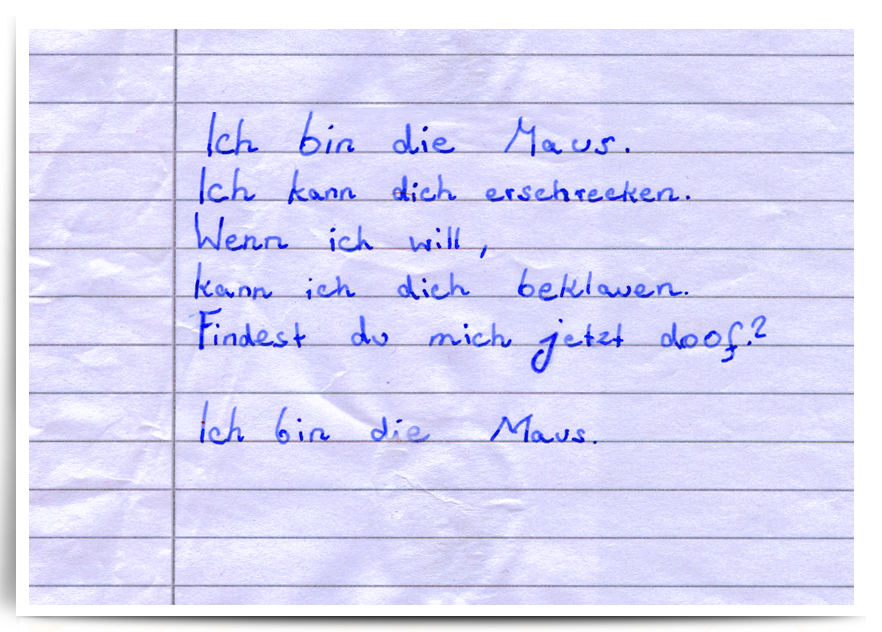 Ich bin die Maus.
Ich kann dich erschrecken.
Wenn ich will,
kann ich dich beklauen.
Findest du mich jetzt doof?
Ich bin die Maus.